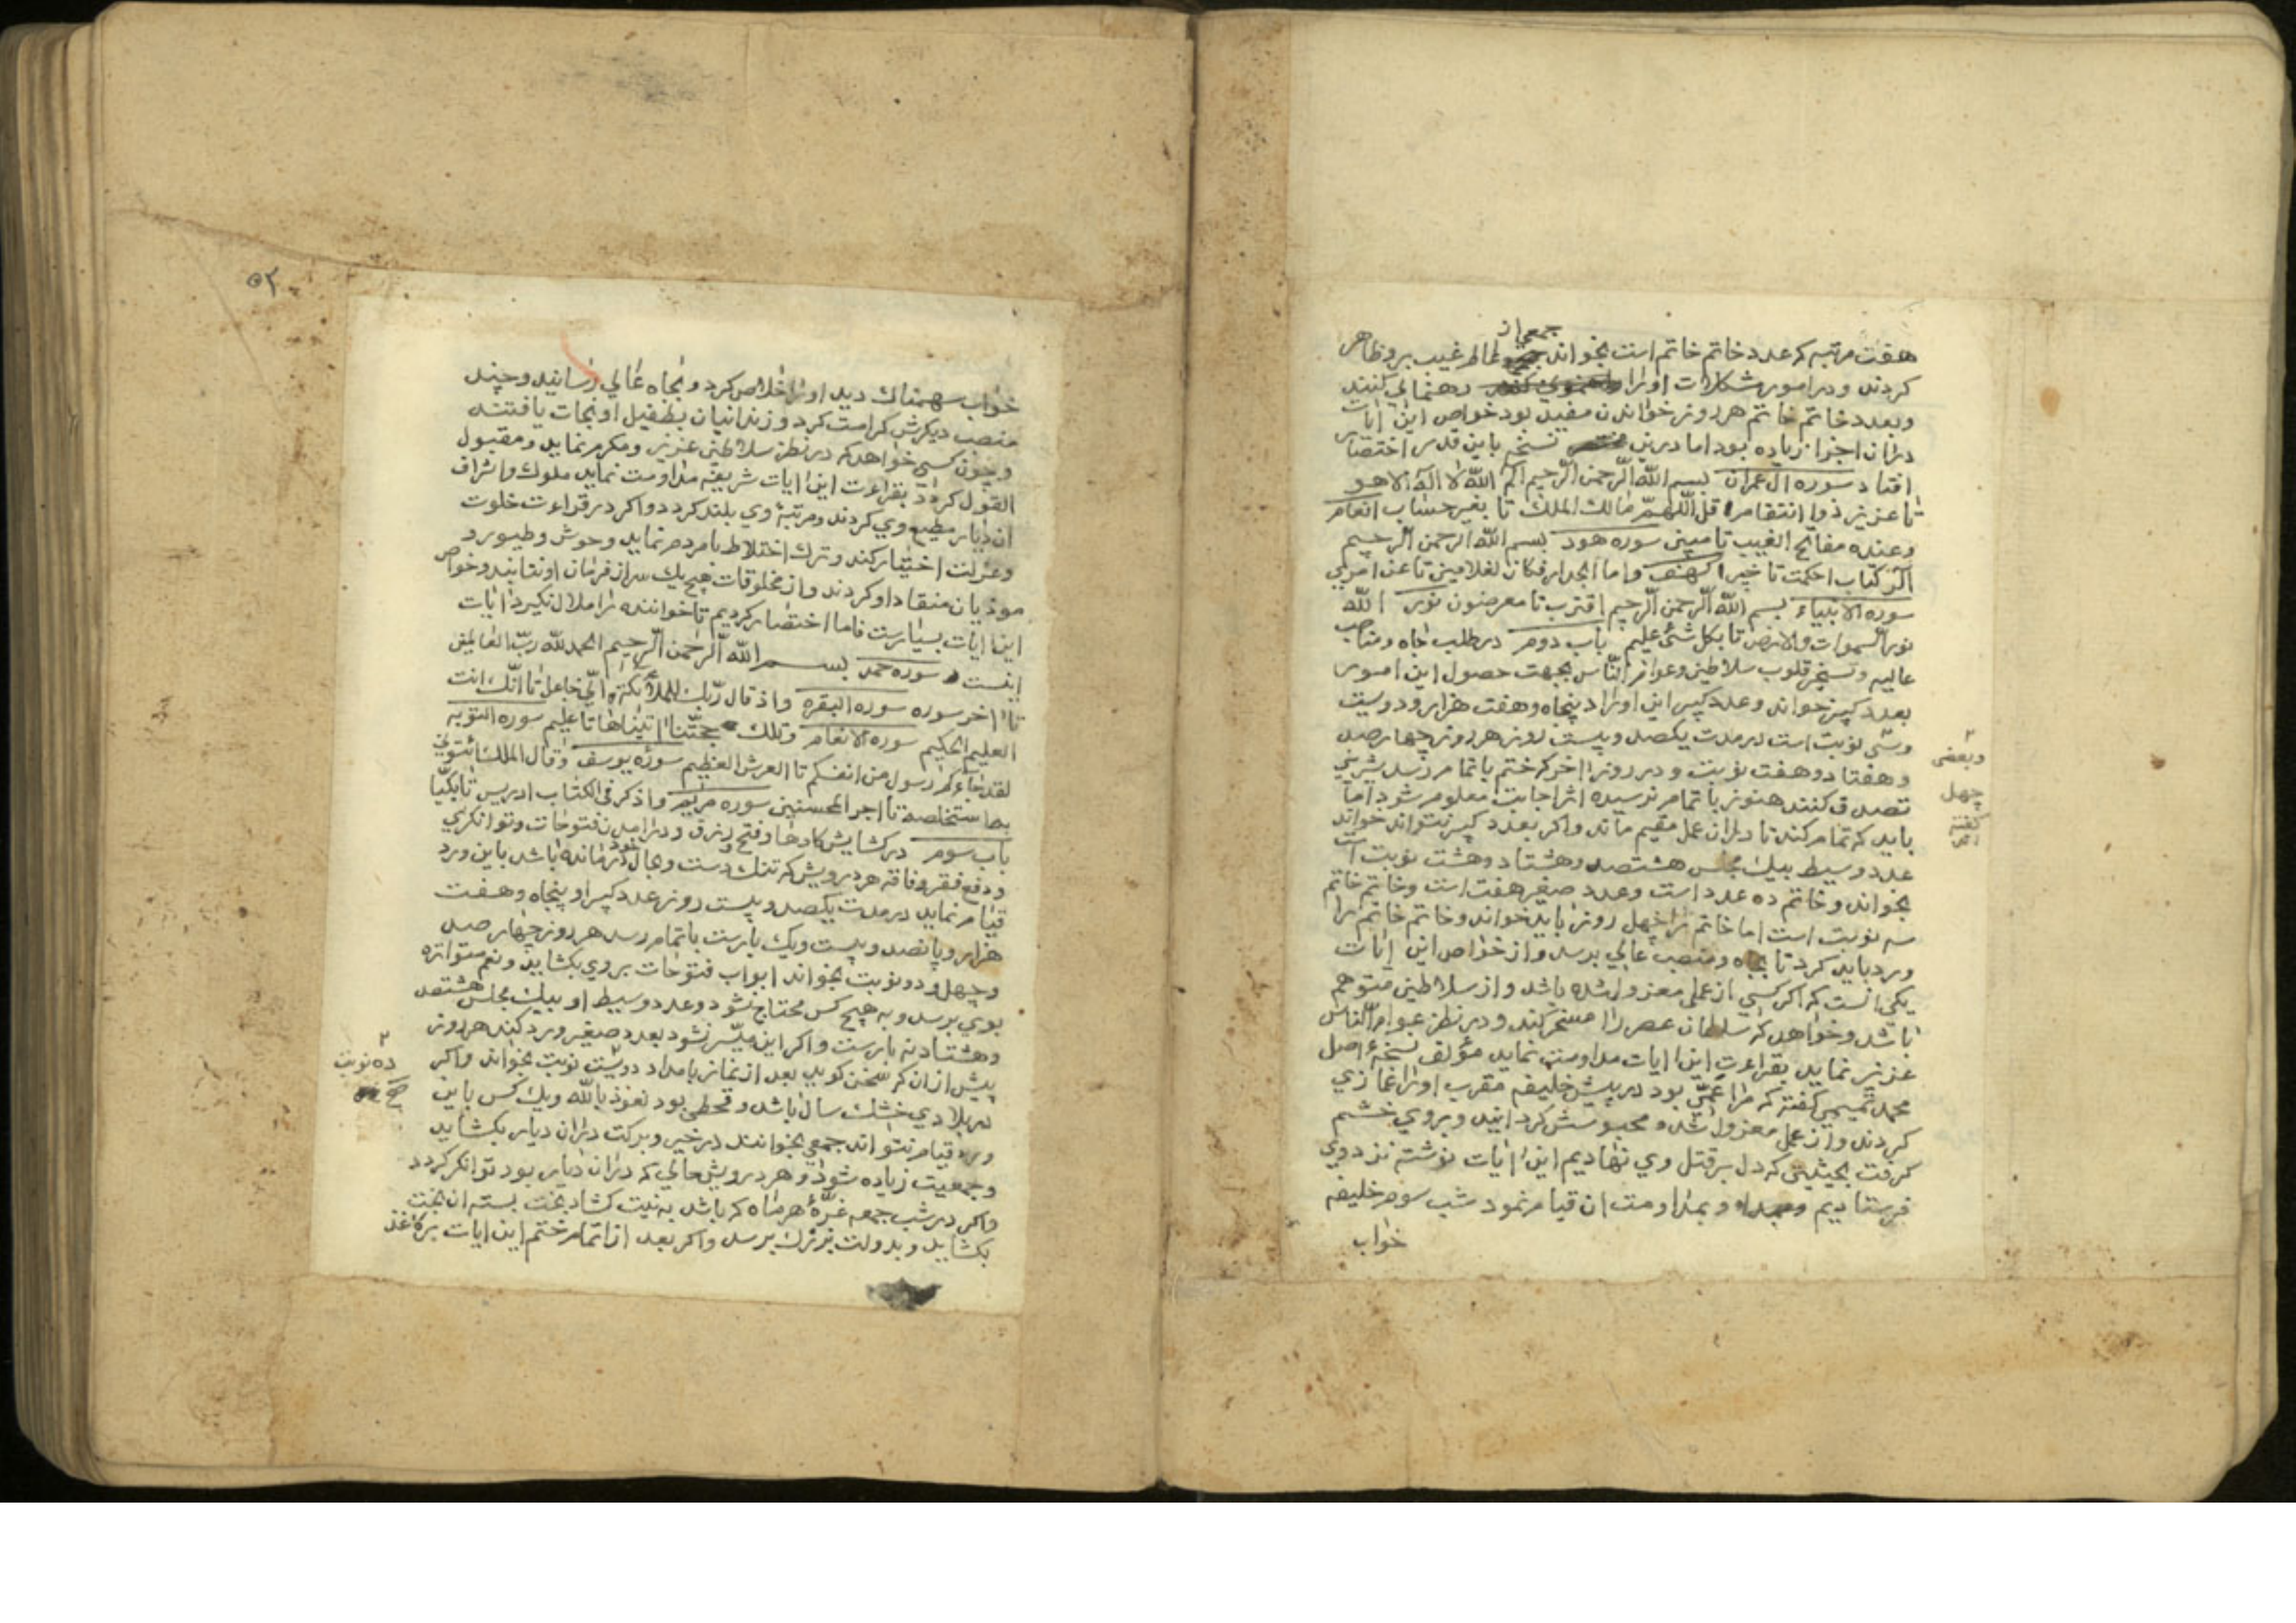 هفت مرتبه که عدد خاتم خاتم است بخواند جمعی از عالم غیب برو ظاهر
کردند و در امور مشکلات او را رهنمایی کنند
و بعدد خاتم خاتم هر روز خواندن مفید بود خواص این ایات
دران اجزا زیاده بود اما درین نسخه باین قدر اختصار
افتاد سوره ال عمران بسم الله الرحمن الرحیم الم الله لا اله الا هو
تا عزیز ذو انتقام قل اللهم مالك الملك تا بغیر حساب انعام
وعنده مفاتح الغیب تا مبین سوره هود بسم الله الرحمن الرحیم
الر کتاب احکمت تا خبیر الکهف واما الجدار فکان لغلامین تا عن امری
سوره الانبیاء بسم الله الرحمن الرحیم اقترب تا معرضون نور الله
نور السموات والارض تا بکل شئ علیم باب دوم در طلب جاه و مناصب
عالیه و تسخیر قلوب سلاطین و عوام الناس بجهت حصول این امور
بعدد کبیر خواند و عدد کبیر این اوراد پنجاه و هفت هزار و دویست
وسی نوبت است در مدت یکصد و بیست روز هر روز چهارصد
و هفتاد و هفت نوبت و در روز اخر که ختم باتمام رسد شیرینی
تصدق کنند هنوز باتمام نرسیده اثر اجابت معلوم شود اما
باید که تمام کند تا دران عمل مقیم ماند واکر بعدد کبیر نتواند خواند
عدد وسیط بیك مجلس هشتصد و هشتاد و هشت نوبت است
بخواند و خاتم ده عدد است و عدد صغیر هفت است و خاتم خاتم
سه نوبت است اما خاتم را چهل روز باید خواند و خاتم خاتم را
ورد باید کرد تا بجاه و منصب عالی برسد و از خواص این ایات
یکی انست که اکر کسی از عمل معزول شده باشد و از سلاطین متوهم
باشد و خواهد که سلطان عصر را مسخر کند و در نظر عوام الناس
عزیز نماید بقراءت این ایات مداومت نماید مؤلف نسخه اصل
محمد تمیمی کفته که مرا عمی بود در پیش خلیفه مقرب او را غمازی
کردند و از عمل معزول شد و محبوسش کردانید و بروی خشم
کرفت بحیثیتی که دل بر قتل وی نهادیم این ایات نوشته نزد وی
فرستادیم و بمداومت ان قیام نمود شب سوم خلیفه
خواب
۲
وبعضی
چهل
کفته
اند
۵۲
خواب سهمناك دید او را خلاص کرد و بجاه عالی رسانید و چند
منصب دیکرش کرامت کرد و زندانیان بطفیل او نجات یافتند
و چون کسی خواهد که در نظر سلاطین عزیز و مکرم نماید و مقبول
القول کردد بقراءت این ایات شریفه مداومت نماید ملوك واشراف
ان دیار مطیع وی کردند و مرتبۀ وی بلند کردد واکر در قراءت خلوت
وعزلت اختیار کند و ترك اختلاط با مردم نماید وحوش وطیور و
موذیان منقاد او کردند و از مخلوقات هیچ یك سر از فرمان او نتابند وخواص
این ایات بسیارست فاما اختصار کردیم تا خواننده را ملال نکیرد ایات
اینست سوره حمد بسم الله الرحمن الرحیم الحمد لله رب العالمین
تا اخر سوره سوره البقره واذ قال ربك للملائکة انی جاعل تا انك انت
العلیم الحکیم سوره الانعام وتلك حجتنا اتیناها تا علیم سوره التوبه
لقد جاءکم رسول من انفسکم تا العرش العظیم سوره یوسف وقال الملك ائتونی
به استخلصه تا اجر المحسنین سوره مریم واذکر فی الکتاب ادریس تا بکیا
باب سوم در کشایش کارها و فتح رزق و درامدن فتوحات وتوانکری
و دفع فقر و فاقه هر درویش که تنك دست و بحال خود درمانده باشد باین ورد
قیام نماید در مدت یکصد و بیست روز عدد کبیر او پنجاه و هفت
هزار و پانصد و بیست و یك بارست باتمام رسد هر روز چهار صد
و چهل و دو نوبت بخواند ابواب فتوحات بروی بکشاید و نعم متواتره
بوی برسد و به هیچ کس محتاج نشود و عدد وسیط او بیك مجلس هشتصد
وهشتاد نه بارست واکر این میسر نشود بعدد صغیر ورد کند هر روز
پیش ازان که سخن کوید بعد از نماز بامداد دویست نوبت بخواند واکر
در بلادی خشك سال باشد و قحطی بود نعوذ بالله و یك کس باین
ورد قیام نتواند جمعی بخوانند در خیر و برکت دران دیار بکشاید
وجمعیت زیاده شود و هر درویش حالی که دران دیار بود توانکر کردد
واکر در شب جمعه غرۀ هر ماه که باشد به نیت کشاد بخت بسته ان بخت
بکشاید و بدولت بزرك برسد واکر بعد از اتمام ختم این ایات بر کاغذ
۲
ده نوبت
صح